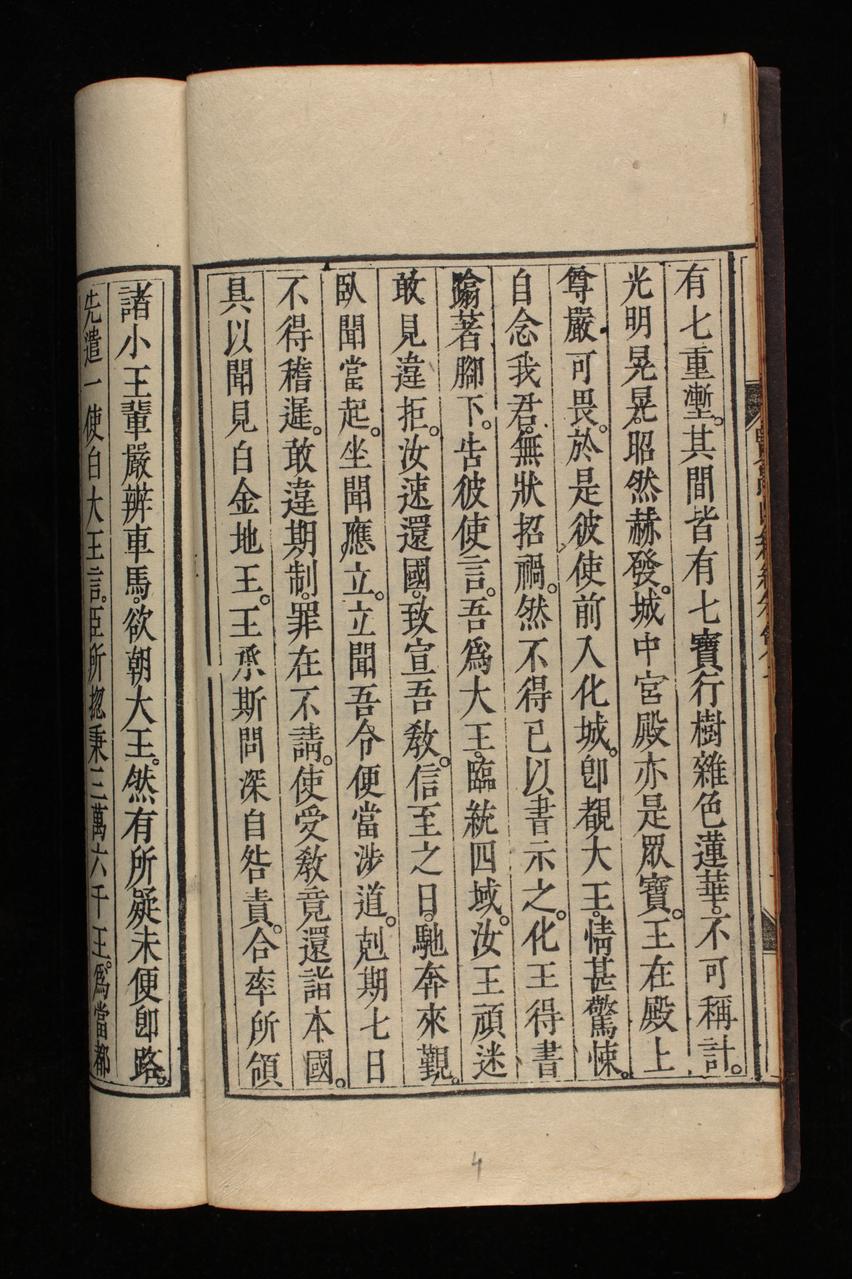 有七重塹。其間皆有七寶行樹雜色蓮華。不可稱計。
光明晃晃。昭然赫發。城中宮殿亦是眾寶。王在殿上
尊嚴可畏。於是彼使前入化城。卽覩大王。情甚驚悚。
自念我君。無狀招禍。然不得已以書示之。化王得書
蹹著腳下。告彼使言。吾爲大王。臨統四域。汝王頑迷
敢見違拒。汝速還國。致宣吾敎。信至之日。馳奔來覲。
臥聞當起。坐聞應立。立聞吾令便當涉道。剋期七日
不得稽遲。敢違期制。罪在不請。使受敎竟還詣本國。
具以聞見白金地王。王承斯問深自咎責。合率所領
諸小王輩嚴辨車馬。欲朝大王。然有所疑未便卽路。
先遣一使白大王言。臣所揔秉三萬六千王。爲當都
4